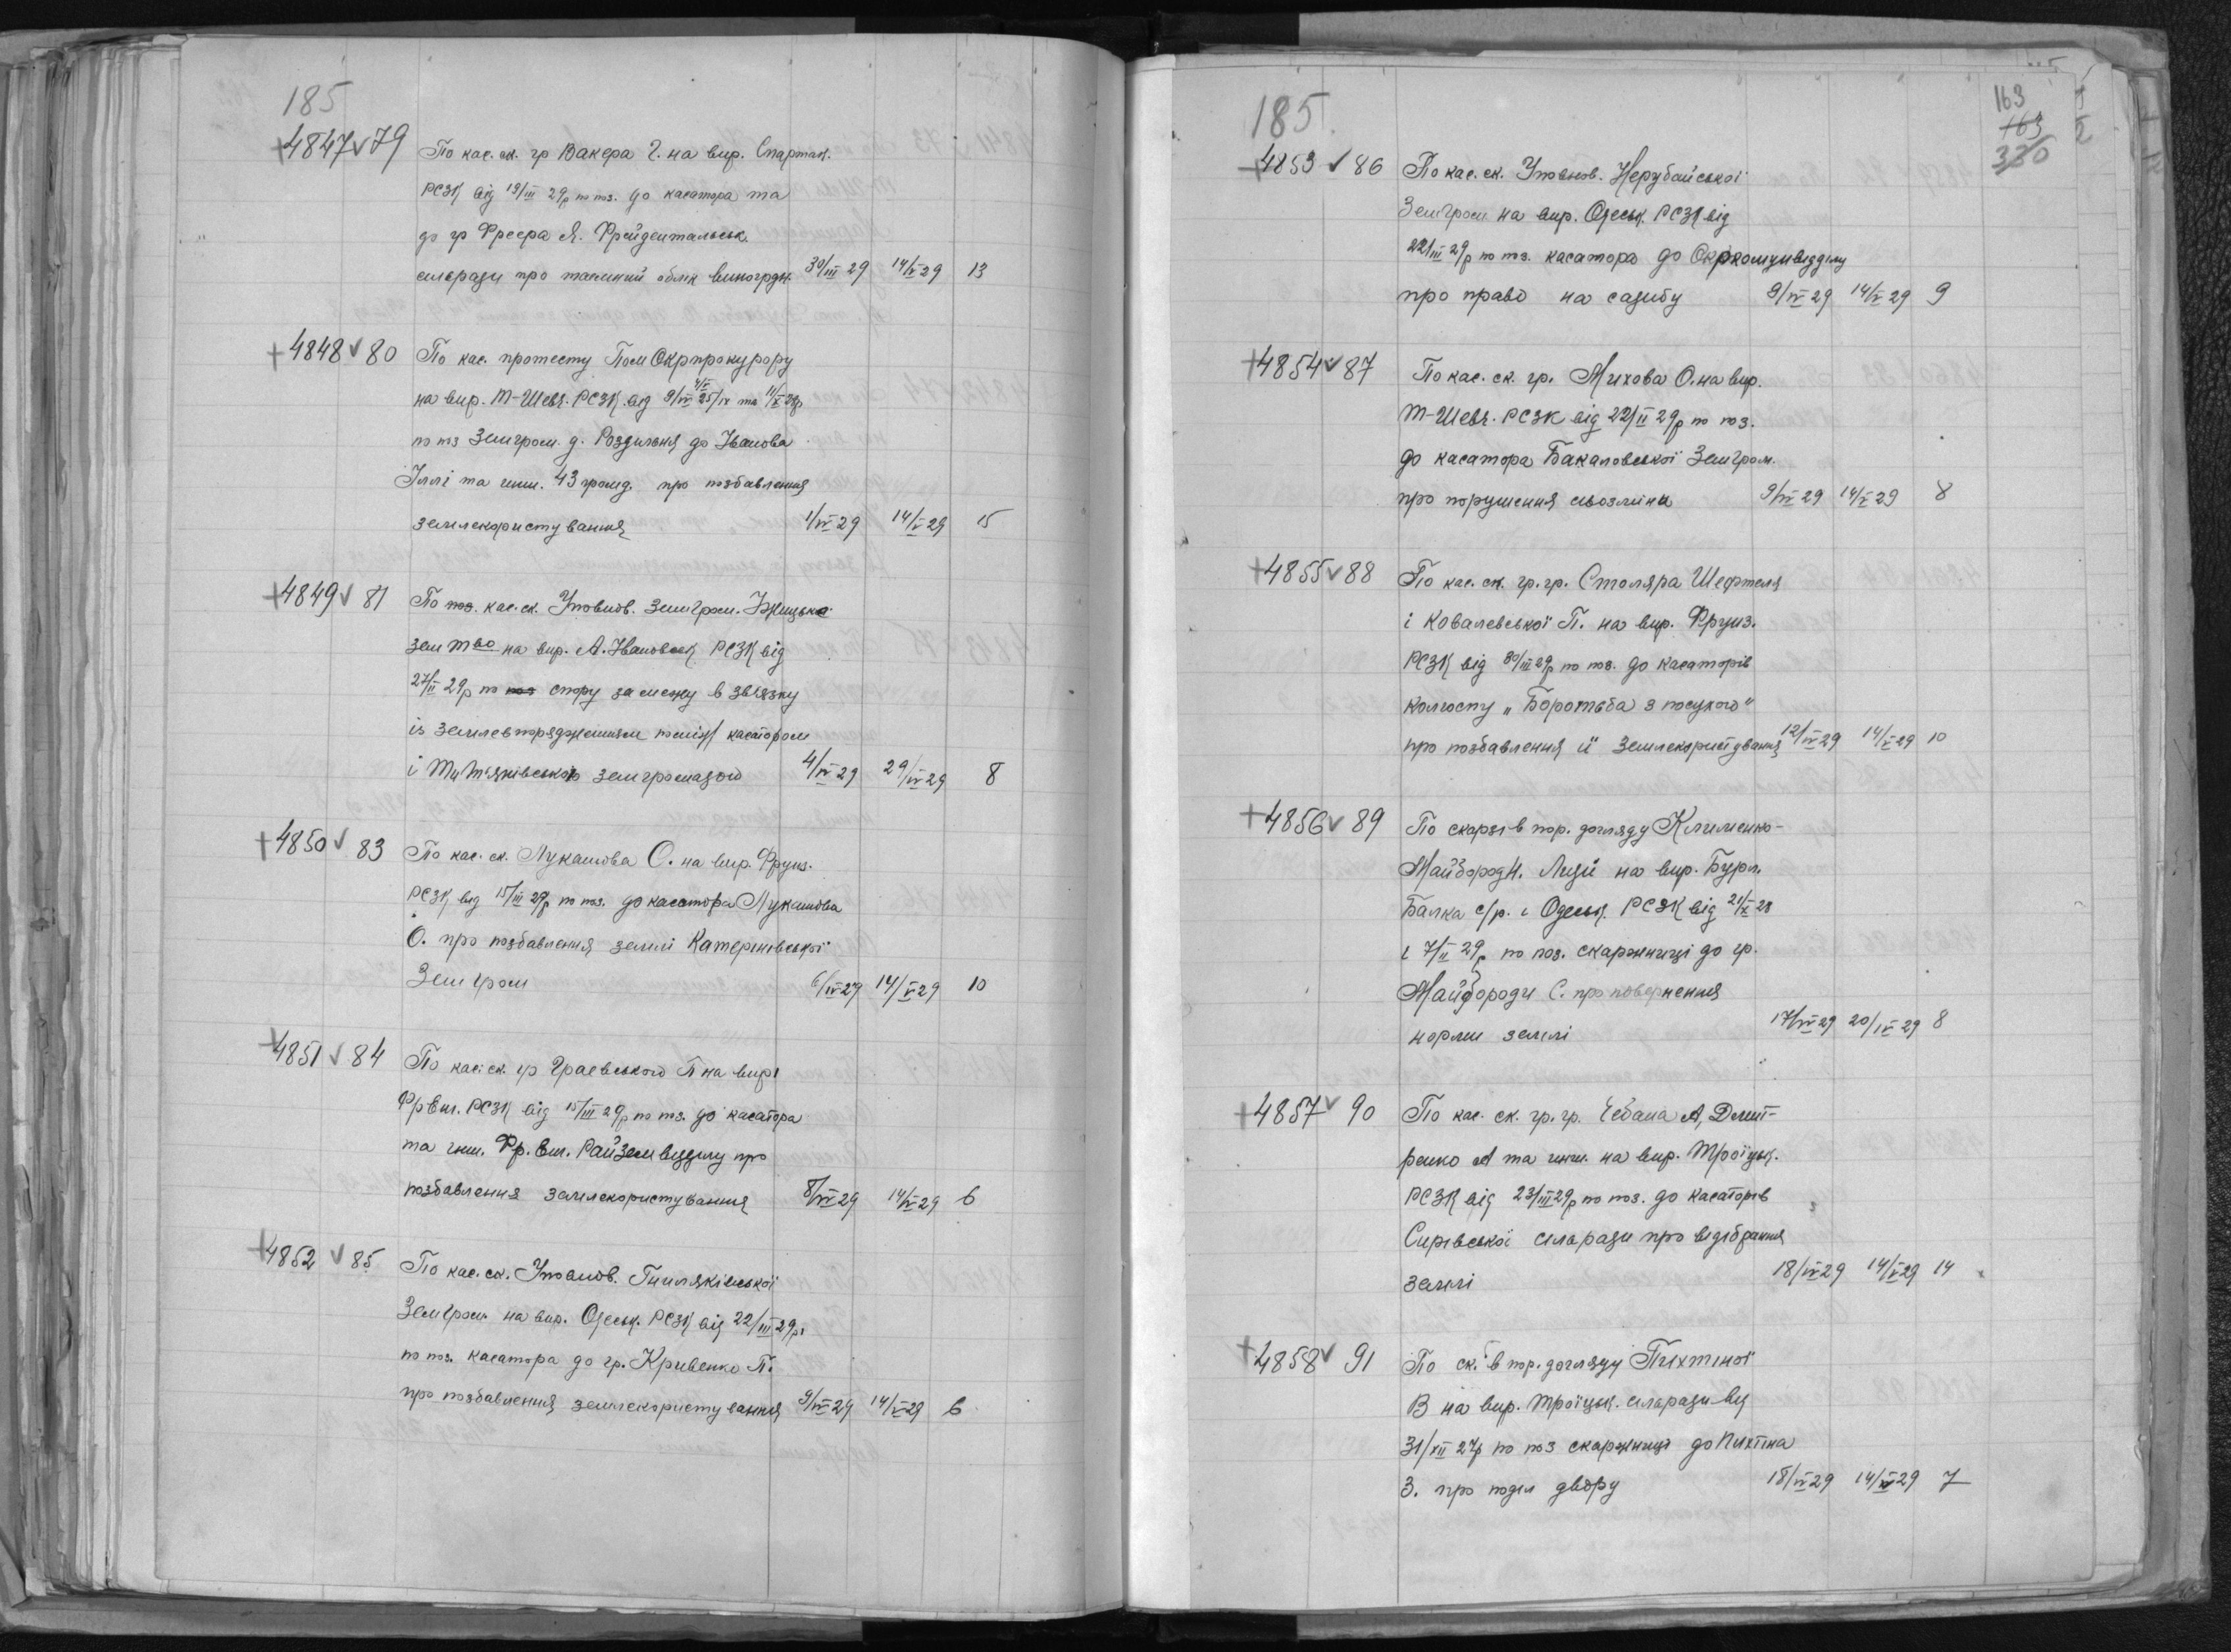 185
+4847 v 79 По кас. ск. гр Вакера Г. на вир. Спартак.
РСЗК від 19/III 29р по поз. до касатора та
до гр Фреєра Я. Фрейдентальськ.
сільради про таємний облік виноградн. 30/III 29 14/V 29 13
+4848 v 80 По кас. протесту Пом Окрпрокурору
на вир. Т-Шевч. РСЗК від 9/IV 25/IX та 4/X 28р
4/V
по позЗемгром. д. Роздільня до Іванова
Іллі та инш. 43 громад. про позбавлення
землекористування 1/IV 29 14/V 29 15
+4849 v 81 По поз. кас. ск. Уповнов. Земгром.
зем тво на вир. А. Івановськ РСЗК від
27/II 29р по поз спору за межу в звязку
із землевпорядженням поміж касатором
і земгромадою 4/IV 29 29/IV 29 8
+4850 v 83 По кас. ск. Лукашова О. на вир. Фрунз.
РСЗК від 15/III 29р по поз. до касатора Лукашова
О. про позбавлення землі Катеринівської
Земгром 6/IV 29 14/V 29 10
+4851 v 84 По кас. ск. гр Граевського П на вир.
Фр Евг. РСЗК від 15/III 29р по поз. до касатора
та инш. Фр. Евг. Райземвідділу про
позбавлення землекористування 8/IV 29 14/V 29 6
+4852 v 85 По кас. ск. Уповнов. Гниляківської
Земгром. на вир. Одеськ. РСЗК від 22/III 29р.
по поз. касатора до гр. Кривенко П.
про позбавлення землекористування 9/IV 29 14/V 29 6
185
163
163
330
+4853 v 86 По кас. ск. Уповнов. Нерубайської
Земгром на вир. Одеськ. РСЗК від
22/III 29р по поз. касатора до Окркомунвідділу
про право на садибу 9/IV 29 14/V 29 9
+4854 v 87 По кас. ск. гр. Михова О. на вир.
Т-Шевч. РСЗК від 22/II 29р по поз.
до касатора Бакаловської Земгром.
про порушення сівозміни 9/IV 29 14/V 29 8
+4855 v 88 По кас. ск. гр. гр. Столяра Шефтеля
і Ковалевської П. на вир. Фрунз.
РСЗК від 30/III 29р по поз. до касаторів
колгоспу „Боротьба з посухою"
про позбавлення їх землекористування 12/IV 29 14/V 29 10
+4856 v 89 По скарзі в пор. догляду Клименко-
Майбород Н. Лизи на вир. Бурл.
Балка с/р. і Одеськ РСЗК від 21/X 28
і 7/II 29р по поз. скаржниці до гр.
Майбороди С. про повернення
норми землі 17/IV 29 20/IV 29 8
+4857 v 90 По кас. ск. гр. гр. Чебана А, Дмит-
ренко А та инш. на вир. Троїцьк.
РСЗК від 23/III 29р по поз. до касаторів
Сирівської сільради про відібрання
землі 18/IV 29 14/V 29 14
+4858 v 91 По ск. в пор. догляду Пихтиної
В на вир. Троїцьк. сільради від
31/XII 27р по поз скаржниці до Пихтіна
З. про поділ двору 18/IV 29 14/V 29 7